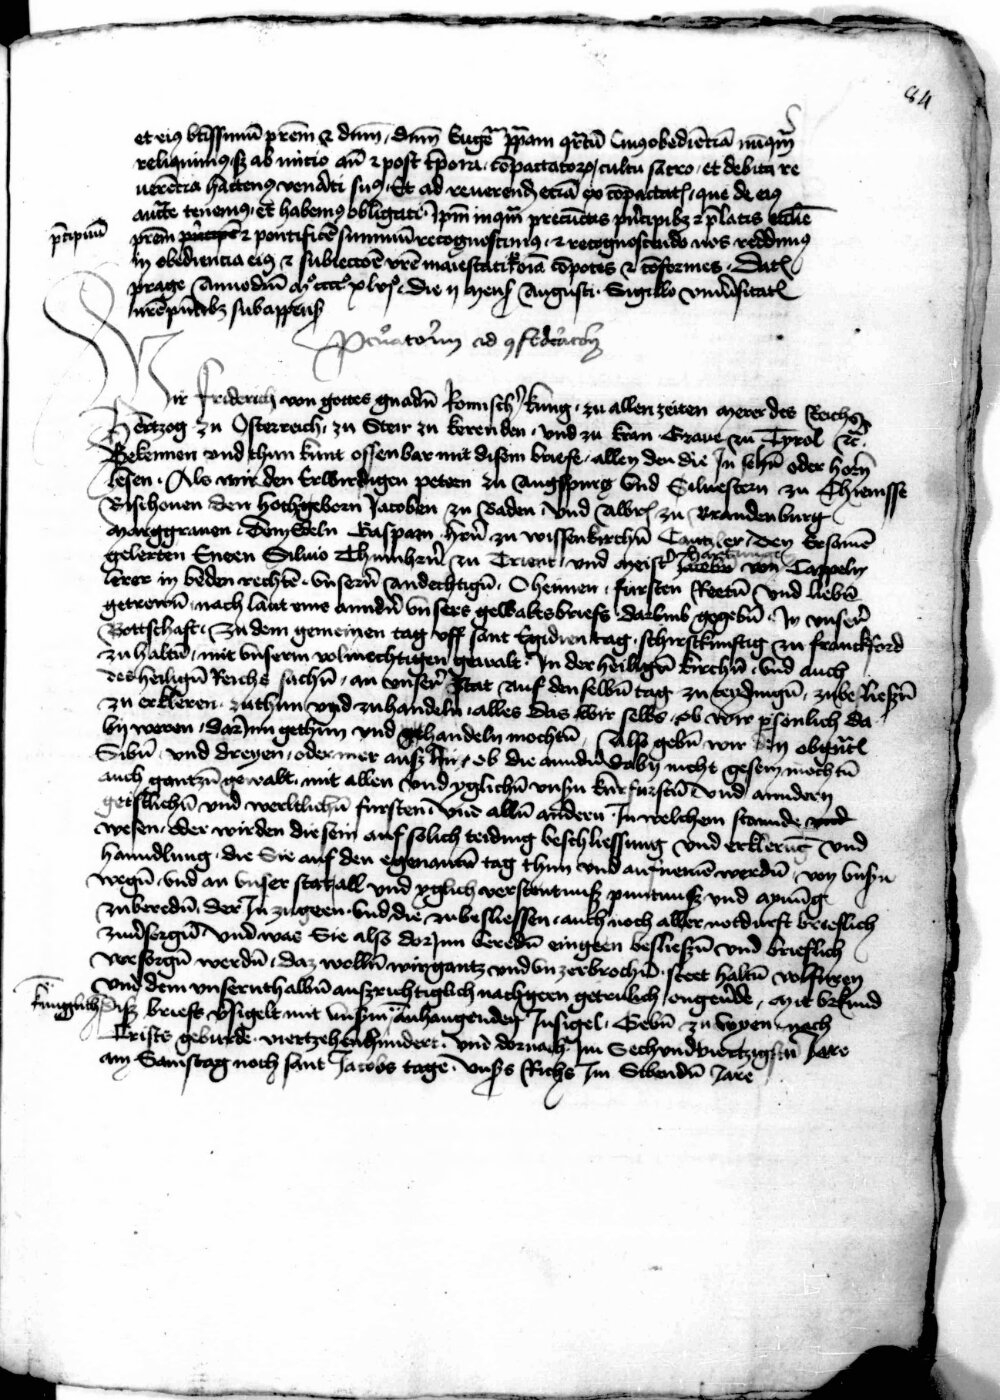 84
et eius btissimū prēm & dnm, dnm Euge ppam qrtū cuius obediētiā nūqm
reliquimus, sz ab initio an & post tpora cōpactatorum cultu sacro et debita re
uerētia hactenus venati sumus, Et ad reuerend etiā ex cōpactat que de eius
aucte tenemus, et habemus obligati. Ipm inqm prefectis principibz & platis
prēm & pontificē summū recognoscimus, & recognoscendo nos reddimus
pcipuū
in obediencia eius & subiectōe vrē maiestati cōpotes & cōformes. Dat
prage Anno dni mº ccccº xlvjº die ij mens Augusti. Sigillo vniuersitat
nrē pntibz subappens
Procuratoriū ad
Wir Friderich von gottes gnadn Romischer kung, zu allen zeiten merer des Reichs
Hertzog zu Osterreich, zu Steir zu kerenden, vnd zu kran Graue zu Tyrol &c.
Bekennen vnd thun kunt offenbar mit disem briefe, allen den die jn sehn oder horn
lesen. Als wir den Erwirdigen petern zu Augspurg vnd Siluestern zu Chiemsse
Bischouen den hochgeborn Jacoben zu Baden vnd Albr zu Brandenburg
Marggrauen, dem Edeln Caspam hern zu wissenkirchn Cantzler, Den Ersamē
gelerten Eneen Siluio Thumhern zu Trient, vnd meister hartungen von Cappeln
lerer in beden rechtē, vnsern andechtign, Oheimen, fursten Reetn vnd liebn
getrewn, nach laut eins anndn vnsers gewaltsbriefs, darumb gegebn, In vnser
Bottschaft, zu dem gemeinen tag vff sant Egidien tag schirstkunftig zu Franckford
zu haltn, mit vnserm volmechtigen gewalt, In der heiligen kirchn vnd auch
des heiligen Reichs sachn, an vnser stat auf den selbn tag zu teydingn, zu beslieszn
zu erkleren, zuthun vnd zuhandeln, alles das wir selbs, ob wir psonlich da
bij weren, darjnn gethun vnd gehandeln mochtn, Also gebn wir den obgnt
Sibn vnd dreyen, oder mer ausz jn, ob die anndn dabij nicht gesein mochtn
auch gantzn gewalt, mit allen vnd yglichn vnsn kurfurstn vnd anndern
geistlichn vnd werltlichn fursten, vnd alln andern In welchem stannde
wesen, oder wirden die sein auf solich teiding beschliessung vnd erklerung vnd
hanndlung, die Sie auf den egenantn tag thun vnd aufnemē werdn, von vnsn
wegn, vnd an vnser stat all vnd yglich verstentnusz puntnusz vnd aynūg
zuberedn, der jn zugeen, vnd die zubesliessen, auch noch aller notdurft brieflich
zuusorgn, vnd was Sie also dorjnn beredn eingeen beslieszn vnd brieflich
versorgn werdn, daz welln wir gantz vnd vnzerbrochn, steet haltn volfüren
vnd dem vnsernthalbn auszrichtiglich nachgeen getrulich, ongeude, Mit vrkund
kunglich
disz briefs vsigelt mit vnsm anhangenden Jnsigel, Gebn zu wyen nach
krists geburde, viertzehenhundert, vnd dornach jm Sechsundviertzigstn Jare
am Samstag noch sant Jacobs tage, vnsers Richs Im Sibendn Jare